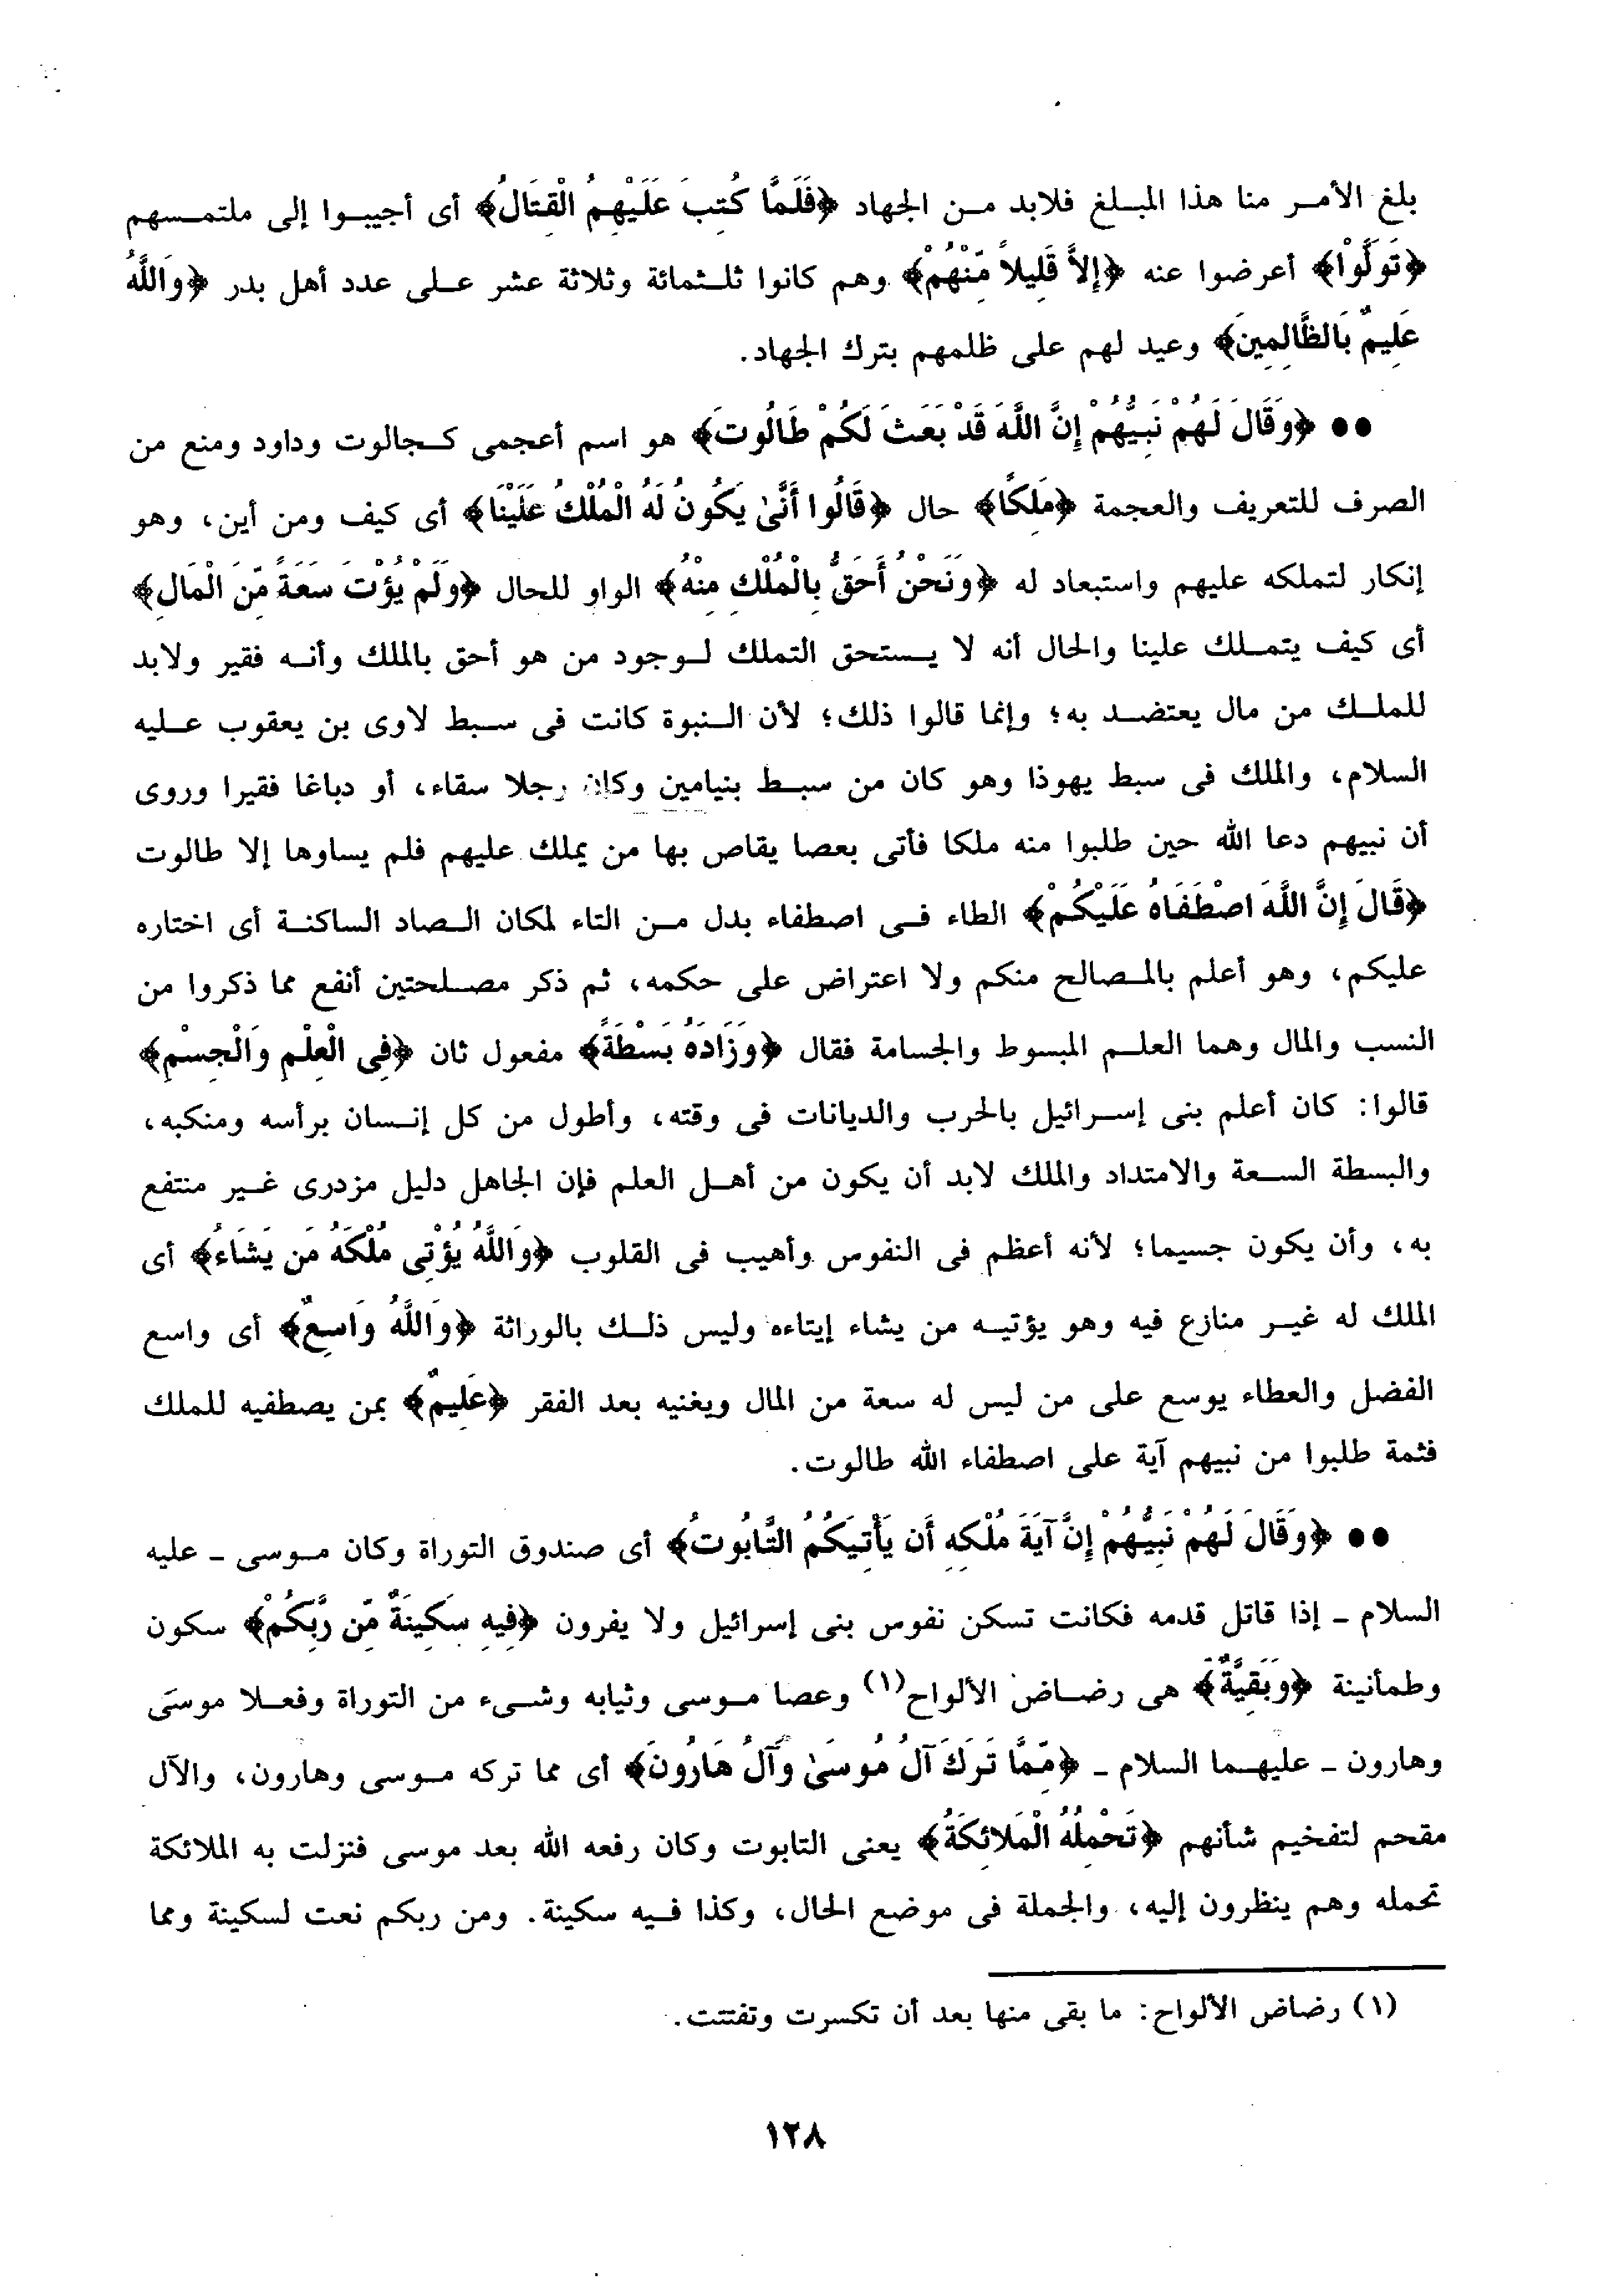 بلغ الأمر منا هذا المبلغ فلابد من الجهاد ﴿فَلَمَّا كُتِبَ عَلَيْهِمُ الْقِتَالُ﴾ أى أجيبوا إلى ملتمسهم
﴿تَوَلَّوْا﴾ أعرضوا عنه ﴿إِلاَّ قَلِيلاً مِّنْهُمْ﴾ وهم كانوا ثلثمائة وثلاثة عشر على عدد أهل بدر ﴿وَاللَّهُ
عَلِيمٌ بِالظَّالِمِينَ﴾ وعيد لهم على ظلمهم بترك الجهاد.
●● ﴿وَقَالَ لَهُمْ نَبِيُّهُمْ إِنَّ اللَّهَ قَدْ بَعَثَ لَكُمْ طَالُوتَ﴾ هو اسم أعجمى كجالوت وداود ومنع من
الصرف للتعريف والعجمة ﴿مَلِكًا﴾ حال ﴿قَالُوا أَنَّىٰ يَكُونُ لَهُ الْمُلْكُ عَلَيْنَا﴾ أى كيف ومن أين، وهو
إنكار لتملكه عليهم واستبعاد له ﴿وَنَحْنُ أَحَقُّ بِالْمُلْكِ مِنْهُ﴾ الواو للحال ﴿وَلَمْ يُؤْتَ سَعَةً مِّنَ الْمَالِ﴾
أى كيف يتملك علينا والحال أنه لا يستحق التملك لوجود من هو أحق بالملك وأنه فقير ولابد
للملك من مال يعتضد به؛ وإنما قالوا ذلك؛ لأن النبوة كانت فى سبط لاوى بن يعقوب عليه
السلام، والملك فى سبط يهوذا وهو كان من سبط بنيامين وكان رجلا سقاء، أو دباغا فقيرا وروى
أن نبيهم دعا الله حين طلبوا منه ملكا فأتى بعصا يقاص بها من يملك عليهم فلم يساوها إلا طالوت
﴿قَالَ إِنَّ اللَّهَ اصْطَفَاهُ عَلَيْكُمْ﴾ الطاء فى اصطفاء بدل من التاء لمكان الصاد الساكنة أى اختاره
عليكم، وهو أعلم بالمصالح منكم ولا اعتراض على حكمه، ثم ذكر مصلحتين أنفع مما ذكروا من
النسب والمال وهما العلم المبسوط والجسامة فقال ﴿وَزَادَهُ بَسْطَةً﴾ مفعول ثان ﴿فِى الْعِلْمِ وَالْجِسْمِ﴾
قالوا: كان أعلم بنى إسرائيل بالحرب والديانات فى وقته، وأطول من كل إنسان برأسه ومنكبه،
والبسطة السعة والامتداد والملك لابد أن يكون من أهل العلم فإن الجاهل دليل مزدرى غير منتفع
به، وأن يكون جسيما؛ لأنه أعظم فى النفوس وأهيب فى القلوب ﴿وَاللَّهُ يُؤْتِى مُلْكَهُ مَن يَشَاءُ﴾ أى
الملك له غير منازع فيه وهو يؤتيه من يشاء إيتاءه وليس ذلك بالوراثة ﴿وَاللَّهُ وَاسِعٌ﴾ أى واسع
الفضل والعطاء يوسع على من ليس له سعة من المال ويغنيه بعد الفقر ﴿عَلِيمٌ﴾ بمن يصطفيه للملك
فثمة طلبوا من نبيهم آية على اصطفاء الله طالوت.
●● ﴿وَقَالَ لَهُمْ نَبِيُّهُمْ إِنَّ آيَةَ مُلْكِهِ أَن يَأْتِيَكُمُ التَّابُوتُ﴾ أى صندوق التوراة وكان موسى - عليه
السلام - إذا قاتل قدمه فكانت تسكن نفوس بنى إسرائيل ولا يفرون ﴿فِيهِ سَكِينَةٌ مِّن رَّبِّكُمْ﴾ سكون
وطمأنينة ﴿وَبَقِيَّةٌ﴾ هى رضاض الألواح(١) وعصا موسى وثيابه وشىء من التوراة وفعلا موسى
وهارون - عليهما السلام - ﴿مِّمَّا تَرَكَ آلُ مُوسَىٰ وَآلُ هَارُونَ﴾ أى مما تركه موسى وهارون، والآل
مقحم لتفخيم شأنهم ﴿تَحْمِلُهُ الْمَلائِكَةُ﴾ يعنى التابوت وكان رفعه الله بعد موسى فنزلت به الملائكة
تحمله وهم ينظرون إليه، والجملة فى موضع الحال، وكذا فيه سكينة. ومن ربكم نعت لسكينة ومما
(١) رضاض الألواح: ما بقى منها بعد أن تكسرت وتفتتت.
١٢٨